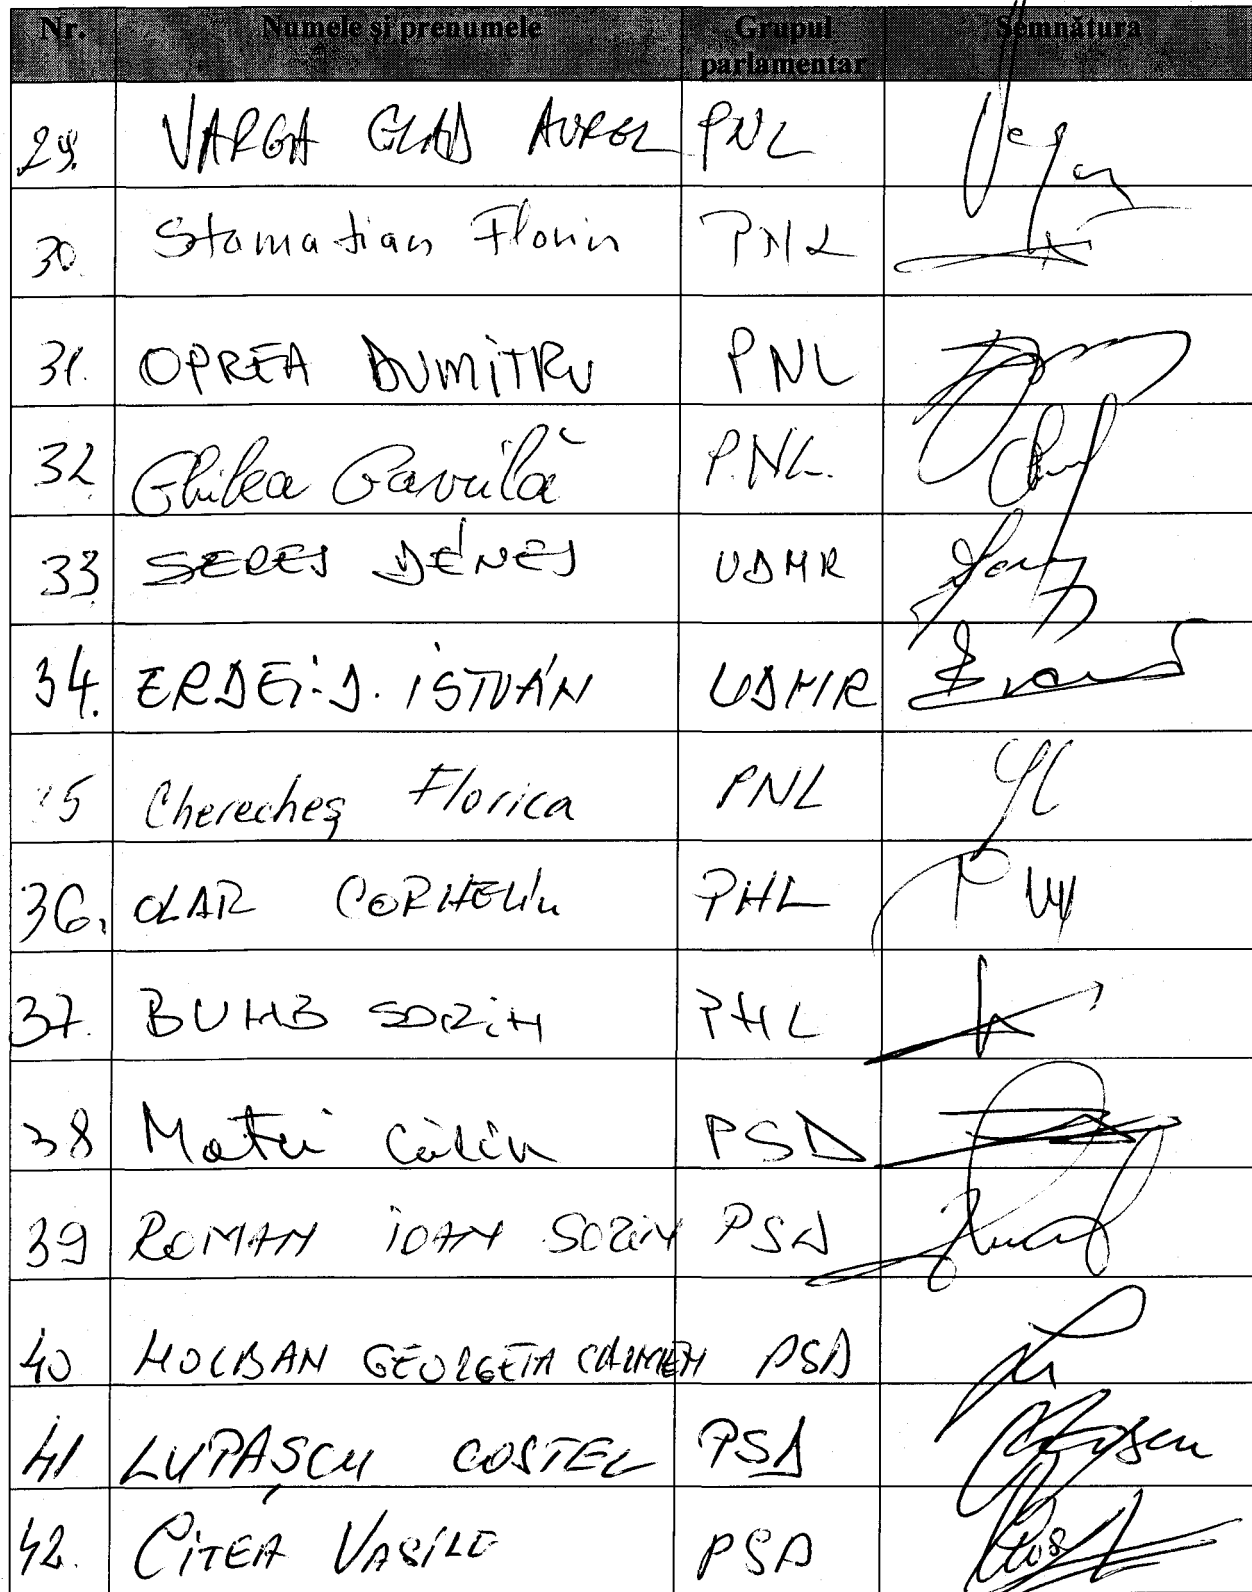 Nr. Numele și prenumele Grupul parlamentar Semnătura
29. VARGA GLAD AUREL PNL
30. Stamatian Florin PNL
31. OPREA DUMITRU PNL
32 Ghilea Gavrilă P.N.L.
33 SERES DÉNES UDMR
34. ERDEI-D. ISTVÁN UDMR
35 Cherecheș Florica PNL
36. OLAR CORNELIU PNL
37. BUMB SORIN PNL
38 Matei Călin PSD
39 ROMAN IOAN SORIN PSD
40 MOLBAN GEORGETA CARMEN PSD
41 LUPAȘCU COSTEL PSD
42. CÎTEA VASILE PSD